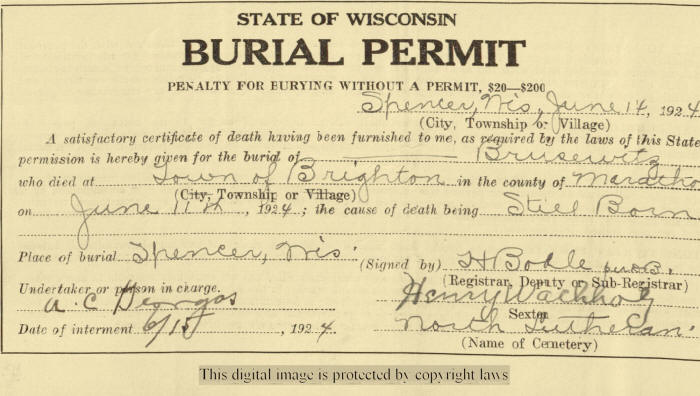 STATE OF WISCONSIN
BURIAL PERMIT
PENALTY FOR BURYING WITHOUT A PERMIT, $20—$200
Spencer, Wis, June 14, 1924
(City, Township or Village)
A satisfactory certificate of death having been furnished to me, as required by the laws of this State
permission is hereby given for the burial of —— Brusewitz
who died at Town of Brighton in the county of Maratho
(City, Township or Village)
on June 11th, 1924; the cause of death being Still Born
Place of burial Spencer, Wis. (Signed by) H Bodle
(Registrar, Deputy or Sub-Registrar)
Undertaker or person in charge. Henry Wachholz
A. C. Sexton
Date of interment 6/15, 1924. North Lutheran
(Name of Cemetery)
This digital image is protected by copyright laws